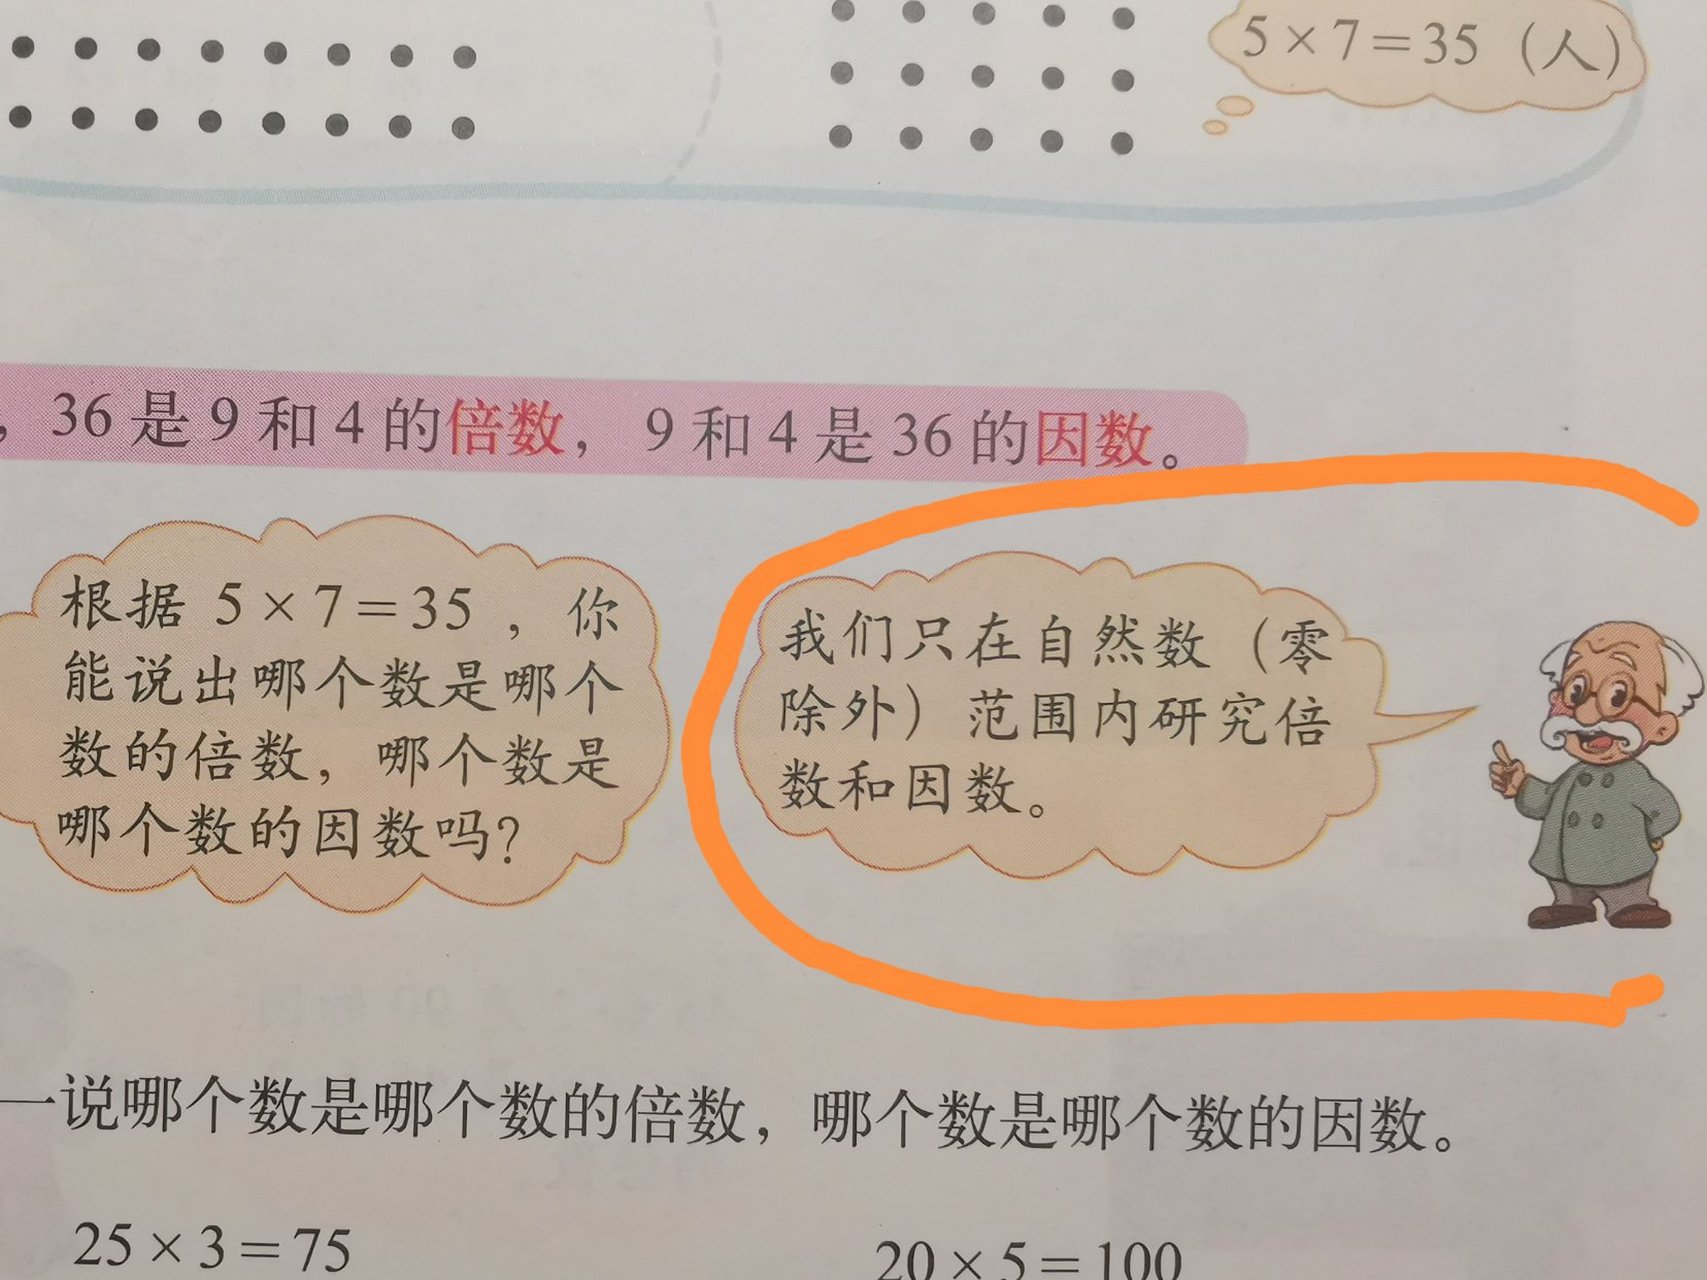 5×7=35（人）
，36是9和4的倍数，9和4是36的因数。
根据 5×7=35，你
能说出哪个数是哪个
数的倍数，哪个数是
哪个数的因数吗？
我们只在自然数（零
除外）范围内研究倍
数和因数。
一说哪个数是哪个数的倍数，哪个数是哪个数的因数。
25×3=75
20×5=100